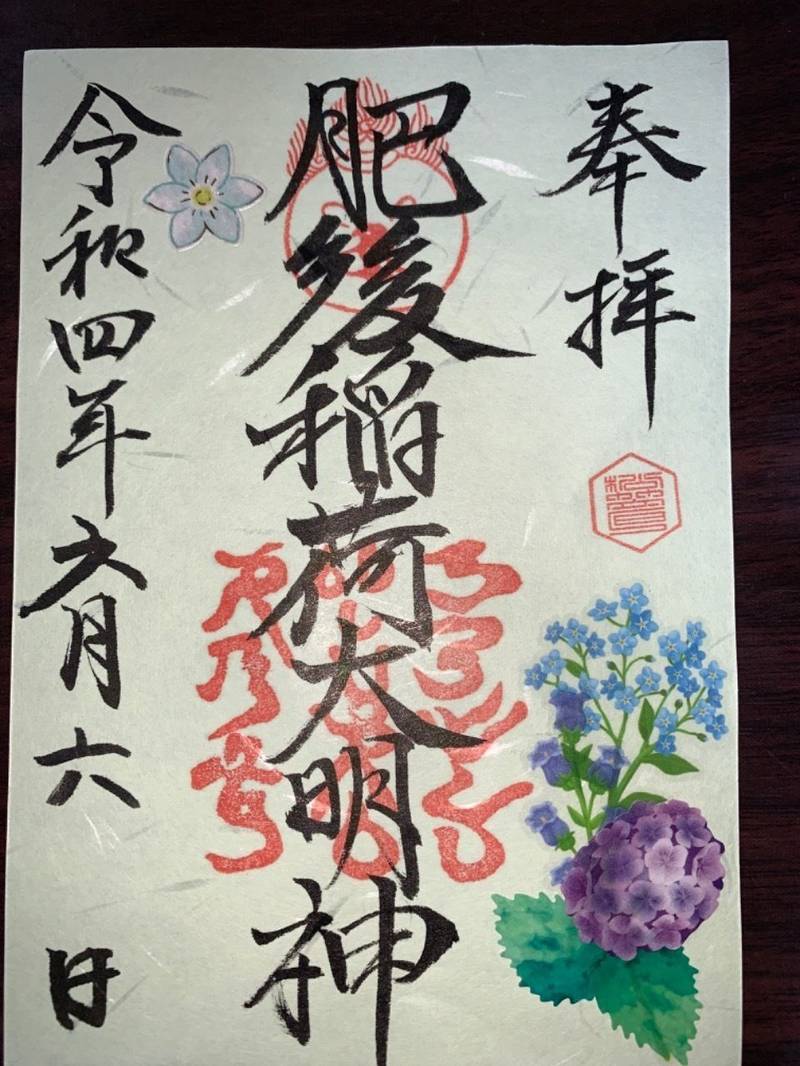 奉拝
肥後稲荷大明神
令和四年六月六日